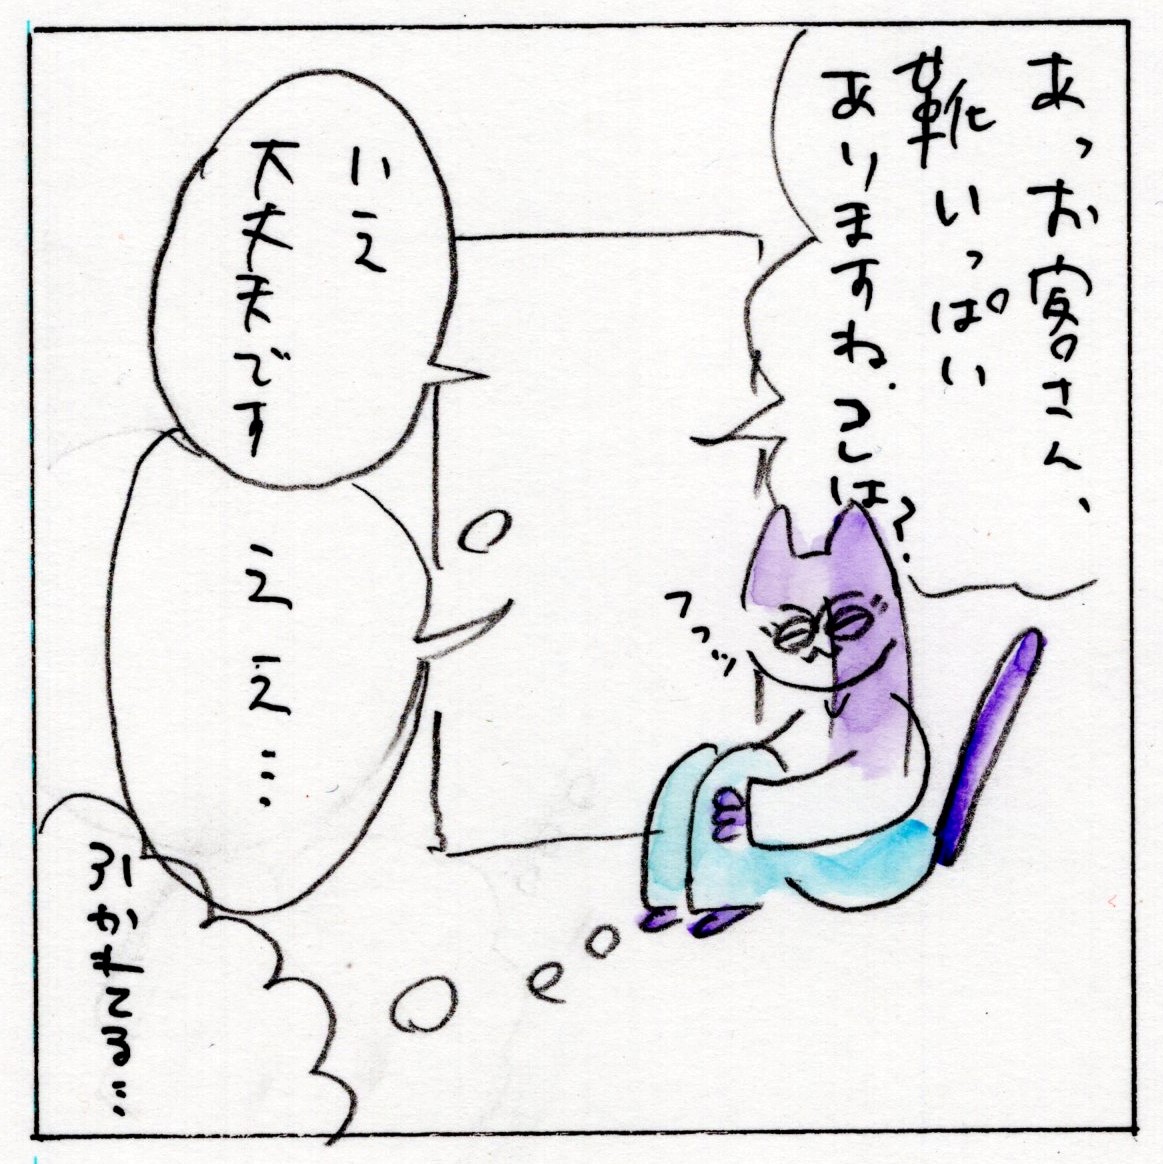 あっお客さん、
靴いっぱい
ありますね。コレは?
いえ
大丈夫です
フフッ
ええ…
引かれてる…